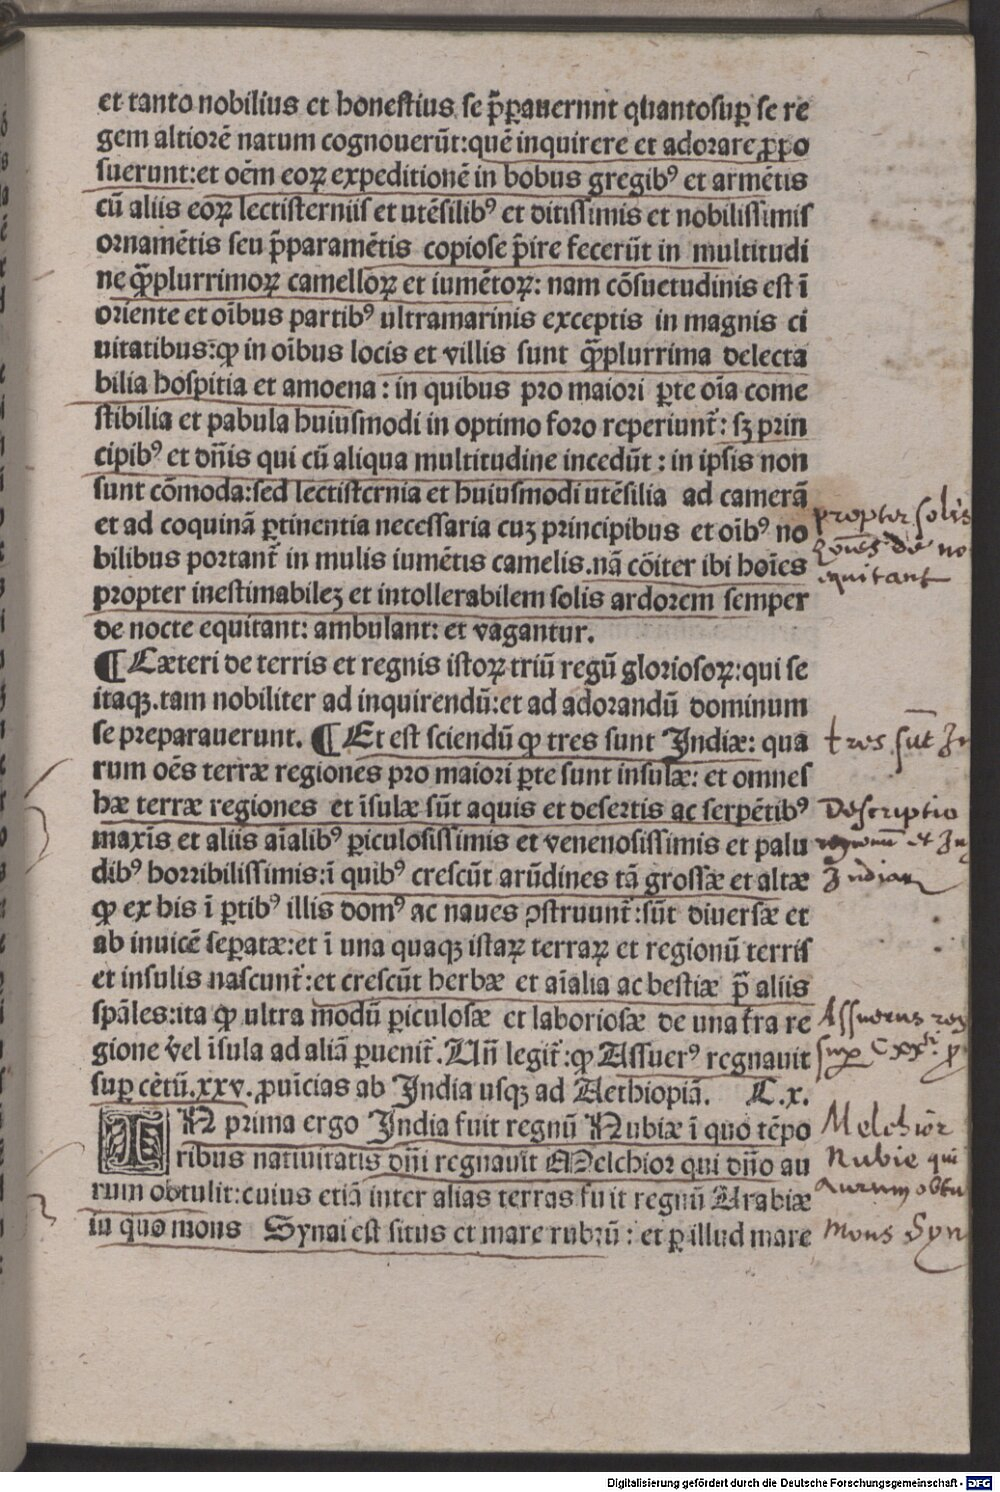 et tanto nobilius et honestius se p̄ꝑauernnt quantosuꝑ se re
gem altiorē natum cognouerūt:quē inquirere et adorare ꝓpo
suerunt:et oēm eoꝝ expeditionē in bobus gregibꝰ et armētis
cū aliis eoꝝ lectisterniis et utēsilibꝰ et ditissimis et nobilissimis
ornamētis seu p̄paramētis copiose p̄ire fecerūt in multitudi
ne q̄ꝫplurrimoꝝ camelloꝝ et iumētoꝝ: nam cōsuetudinis est ī
oriente et oībus partibꝰ ultramarinis exceptis in magnis ci
uitatibus:ꝙ in oībus locis et villis sunt q̄ꝫplurrima delecta
bilia hospitia et amoena: in quibus pro maiori ꝑte oīa come
stibilia et pabula huiusmodi in optimo foro reperiunt̄: sꝫ prin
cipibꝰ et dn̄is qui cū aliqua multitudine incedūt: in ipsis non
sunt cōmoda:sed lectisternia et huiusmodi utēsilia ad camerā
et ad coquinā ꝑtinentia necessaria cuꝫ principibus et oībꝰ no
bilibus portant̄ in mulis iumētis camelis.nā cōiter ibi hoīes
propter inestimabileꝫ et intollerabilem solis ardorem semper
de nocte equitant: ambulant: et vagantur.
¶ Cæteri de terris et regnis istoꝝ triū regū gloriosoꝝ:qui se
itaqꝫ.tam nobiliter ad inquirendū:et ad adorandū dominum
se preparauerunt. ¶ Et est sciendū ꝙ tres sunt Indiæ: qua
rum oēs terræ regiones pro maiori ꝑte sunt insulæ: et omnes
hæ terræ regiones et īsulæ sūt aquis et desertis ac serpētibꝰ
maxīs et aliis aīalibꝰ ꝑiculosissimis et venenosissimis et palu
dibꝰ horribilissimis:ī quibꝰ crescūt arūdines tā grossæ et altæ
ꝙ ex his ī ꝑtibꝰ illis domꝰ ac naues ꝯstruunt̄:sūt diuersæ et
ab inuicē seꝑatæ:et ī una quaqꝫ istaꝝ terraꝝ et regionū terris
et insulis nascunt̄:et crescūt herbæ et aīalia ac bestiæ p̄ aliis
spāles:ita ꝙ ultra modū ꝑiculosæ et laboriosæ de una t̄ra re
gione vel īsula ad aliā ꝑuenit̄.Un̄ legit̄:ꝙ Assuerꝰ regnauit
suꝑ cētū.xxv.ꝓuīcias ab India usqꝫ ad Aethiopiā. C.x.
IN prima ergo India fuit regnū Nubiæ ī quo tēpo
ribus natiuitatis dn̄i regnauit Melchior qui dn̄o au
rum obtulit:cuius etiā inter alias terras fuit regnū Arabiæ
in quo mons Synai est situs et mare rubrū: et ꝑ illud mare
propter solis
die no
equitant
tres sūt In
Descriptio
regionū et In
Indiaꝝ
Assuerus rex
suꝑ Cxx
Melchior
Nubie qui
aurum obtu
mons Syn
Digitalisierung gefördert durch die Deutsche Forschungsgemeinschaft - DFG